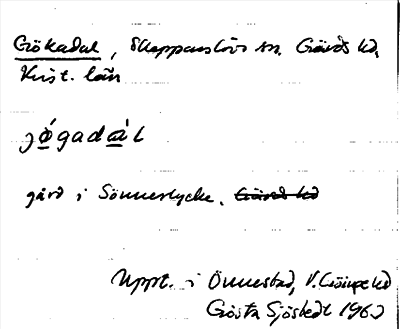 Gökadal, Skepparslövs sn. Gärds hd,
Krist. län
jǿ̱gadà̱l
gård i Sönnerlycke. Gärds hd
Uppt. i Önnestad, V. Göinge hd
Gösta Sjöstedt 1960